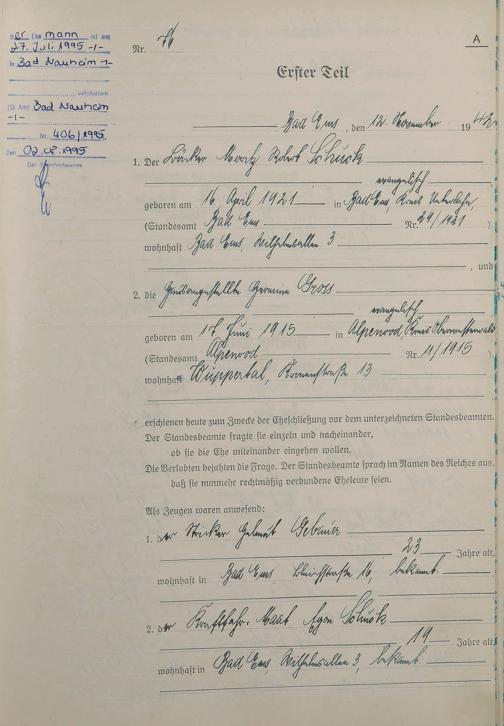 Der Ehemann ist am
27. Juli 1995 -/-
in Bad Nauheim -/-
verstorben
(St.Amt Bad Nauheim
-/-
Nr. 406/1995
Den 02.08.1995
Der Standesbeamte
A
Nr. 74
Erster Teil
Bad Ems, den 12. November 1942
1. Der Bäcker Moritz Robert Schuck
evangelisch
geboren am 16. April 1921 in Bad Ems, Kreis Unterlahn
(Standesamt Bad Ems Nr. 29/1921)
wohnhaft Bad Ems, Wilhelmsallee 3
, und
2. die Büroangestellte Germine Gross
evangelisch
geboren am 17. Juni 1915 in Alpenrod, Kreis Oberwesterwald
(Standesamt Alpenrod Nr. 11/1915)
wohnhaft Wuppertal, 13
erschienen heute zum Zwecke der Eheschließung vor dem unterzeichneten Standesbeamten.
Der Standesbeamte fragte sie einzeln und nacheinander,
ob sie die Ehe miteinander eingehen wollen.
Die Verlobten bejahten die Frage. Der Standesbeamte sprach im Namen des Reiches aus,
daß sie nunmehr rechtmäßig verbundene Eheleute seien.
Als Zeugen waren anwesend:
1. der Stricker Helmut Gebauer
23 Jahre alt,
wohnhaft in Bad Ems, 16, bekannt
2. der Kraftfahr. Maat Egon Schuck
19 Jahre alt
wohnhaft in Bad Ems, Wilhelmsallee 3, bekannt